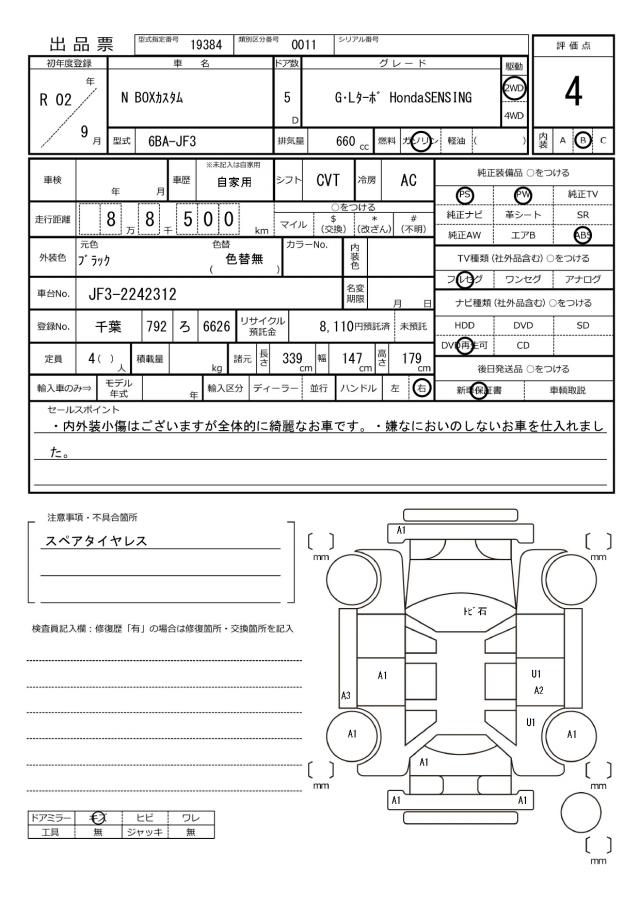 出品票 型式指定番号 19384 類別区分番号 0011 シリアル番号
評価点
初年度登録 車名 ドア数 グレード 駆動
R 02 年 9 月 N BOXカスタム 5 D G・Lターボ HondaSENSING 2WD 4WD
4
型式 6BA-JF3 排気量 660 cc 燃料 ガソリン 軽油 ( )
内装 A B C
車検 年 月 車歴 ※未記入は自家用 自家用 シフト CVT 冷房 AC
純正装備品 ○をつける
PS PW 純正TV
走行距離 8 万 8 千 5 0 0 km
○をつける
マイル $ (交換) * (改ざん) # (不明)
純正ナビ 革シート SR
純正AW エアB ABS
外装色 元色 ブラック 色替 ( 色替無 ) カラーNo. 内装色
TV種類 (社外品含む) ○をつける
フルセグ ワンセグ アナログ
車台No. JF3-2242312 名変期限 月 日
ナビ種類 (社外品含む) ○をつける
登録No. 千葉 792 ろ 6626 リサイクル預託金 8,110円預託済 未預託
HDD DVD SD
DVD再生可 CD
定員 4( ) 人 積載量 kg 諸元 長さ 339 cm 幅 147 cm 高さ 179 cm
後日発送品 ○をつける
輸入車のみ⇒ モデル年式 年 輸入区分 ディーラー 並行 ハンドル 左 右
新車保証書 車輌取説
セールスポイント
・内外装小傷はございますが全体的に綺麗なお車です。・嫌なにおいのしないお車を仕入れまし
た。
注意事項・不具合箇所
スペアタイヤレス
検査員記入欄：修復歴「有」の場合は修復箇所・交換箇所を記入
A1
[ ] mm
[ ] mm
トビ石
A1
U1
A2
A3
U1
A1
A1
A1
[ ] mm
[ ] mm
A1
A1
[ ] mm
ドアミラー キズ ヒビ ワレ
工具 無 ジャッキ 無